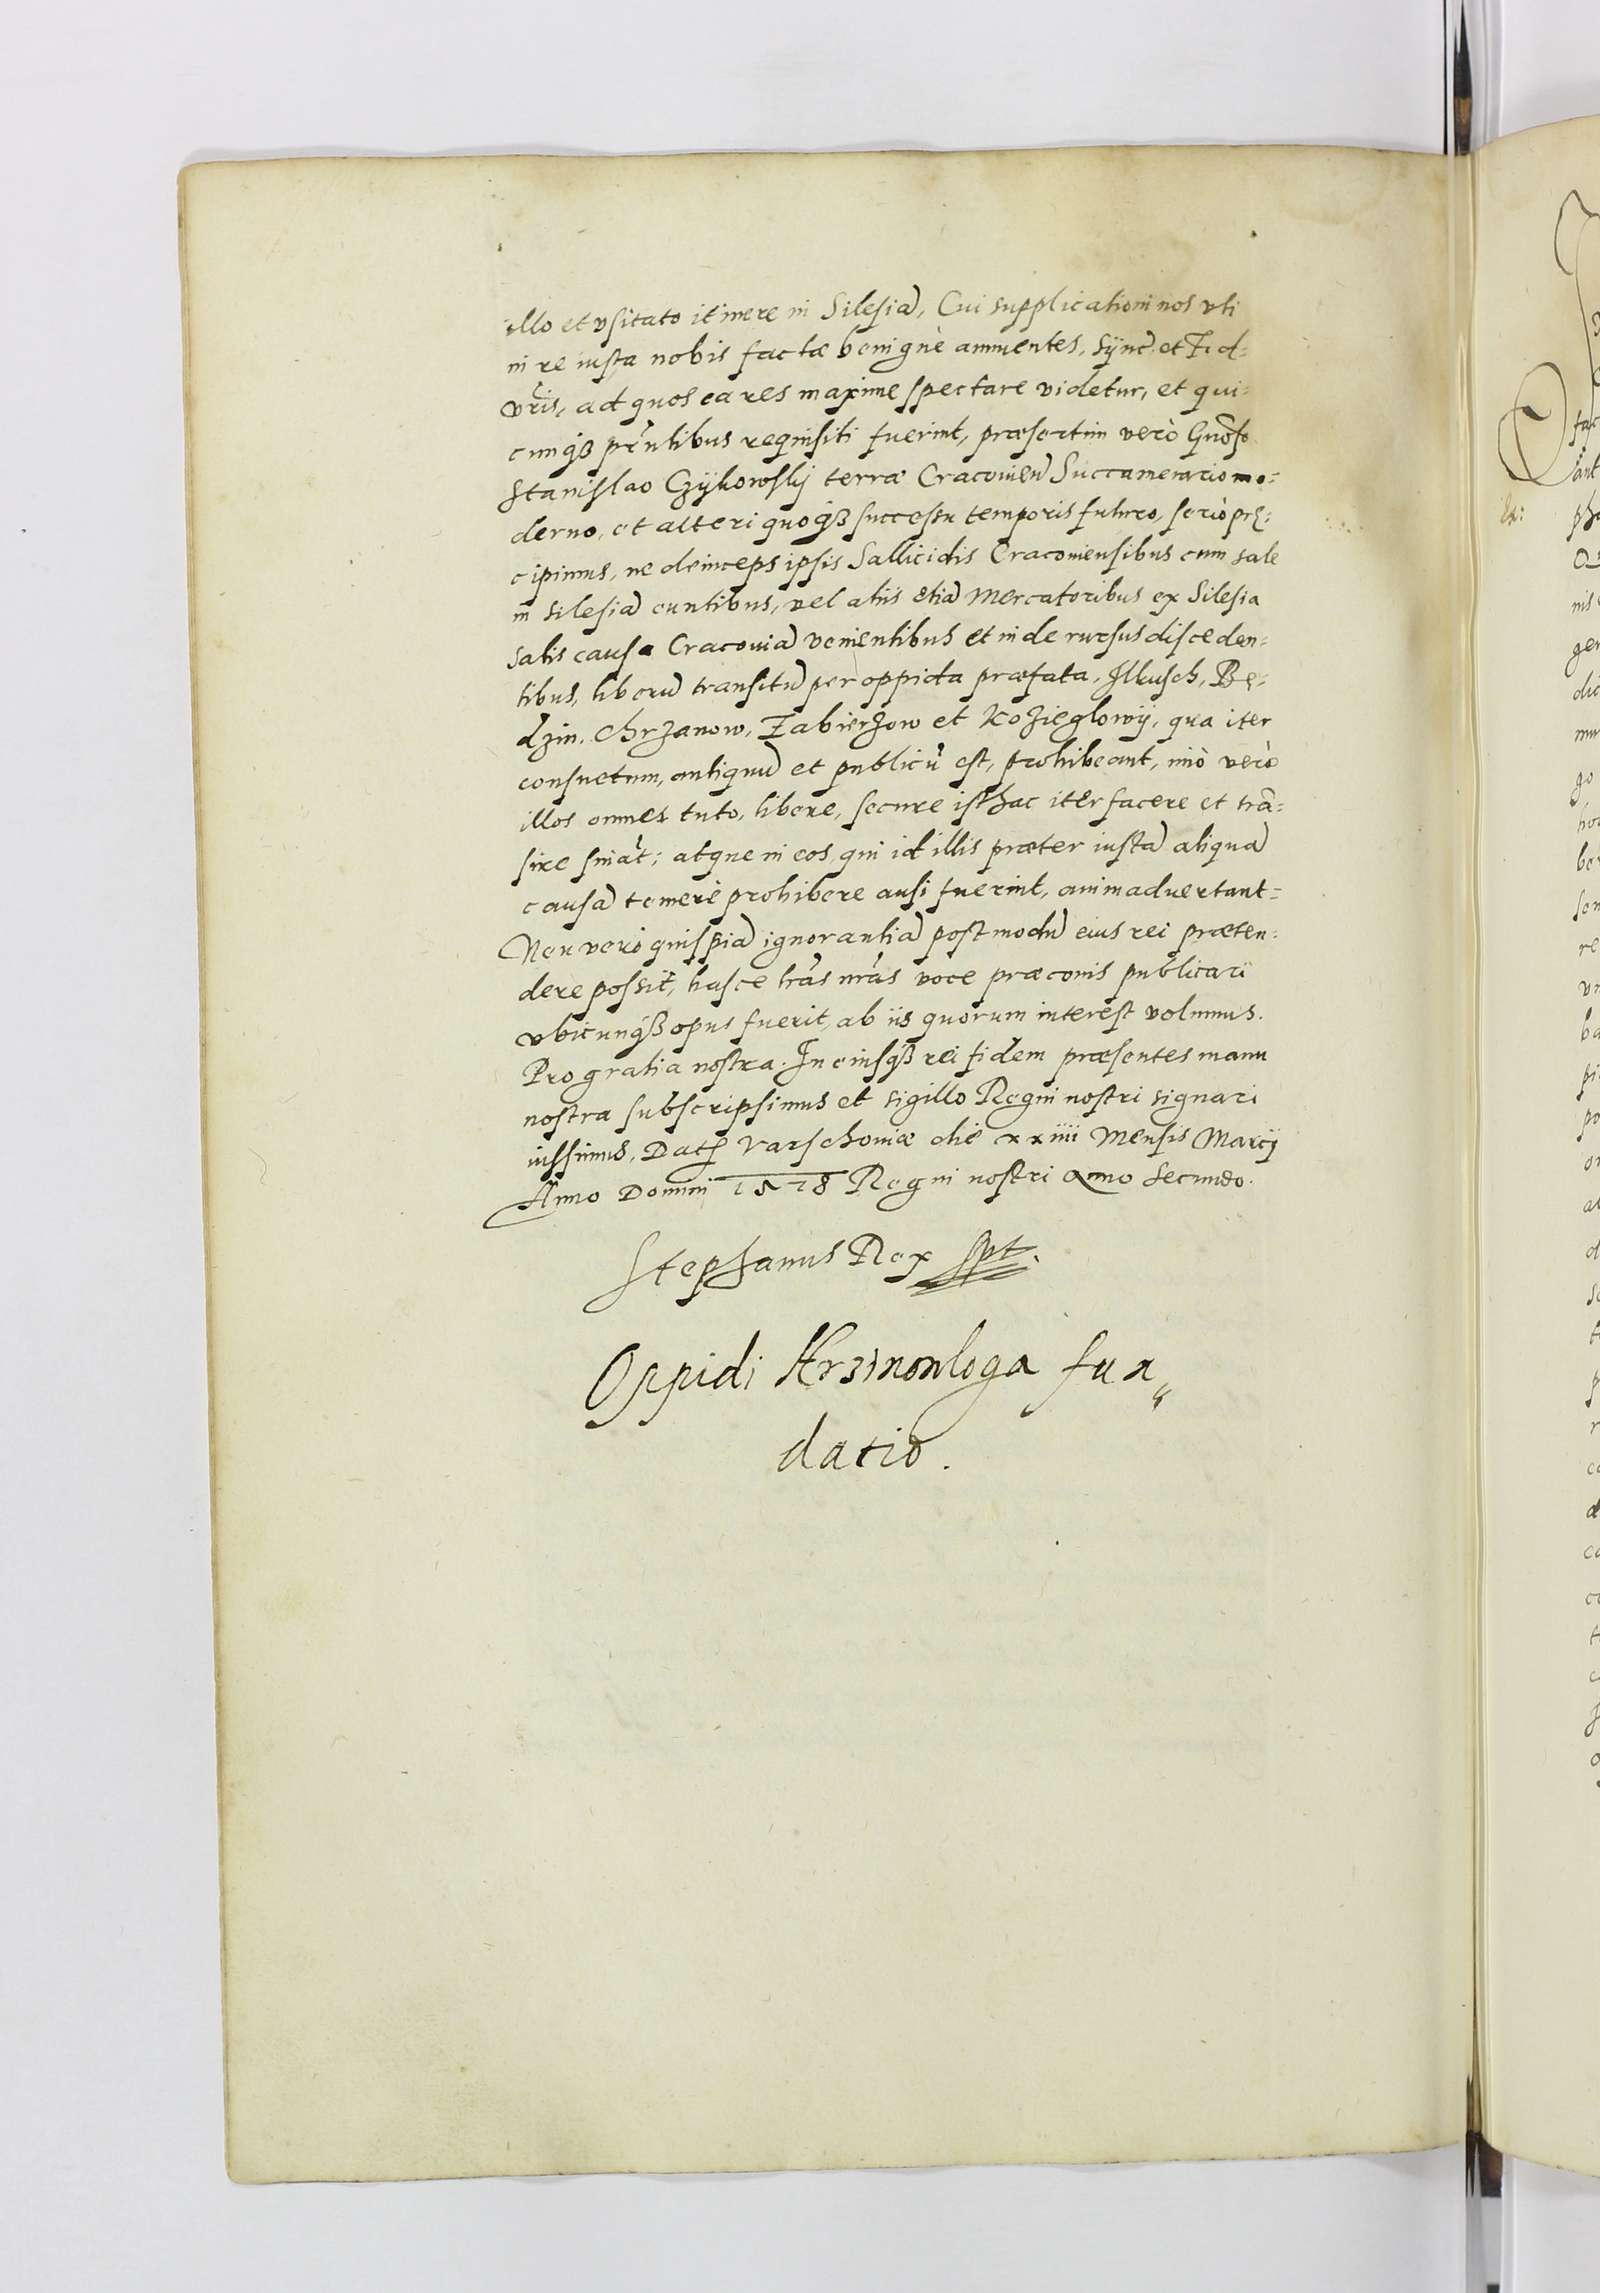 illo et vsitato itinere in Silesiā, Cui supplicationi nos vti
in re iusta nobis factæ benignè annuentes, Sync. et Fid=
vr̃is, ad quos ea res maxime spectare videtur, et qui=
cunqꝫ pr̃ntibus requisiti fuerint, præsertim verò Gnōso
Stanislao Czÿkowskÿ terræ Cracovien̄ Succamerario mo=
derno, et alteri quoqꝫ successu temporis futuro, seriò prę=
cipimus, ne deinceps ipsis Sallicidis Cracoviensibus cum sale
in Silesiā euntibus, vel aliis etiā Mercatoribus ex Silesia
salis causa Cracoviā venientibus et inde rursus disceden=
tibus, liberū transitū per oppida præfata, Ilkusch, Bę=
dzin, Chrzanow, Zabierzow et Kozieglowÿ, qua iter
consuetum, antiquū et publicū est, prohibeant, imò verò
illos omnes tuto, libere, secure isthac iter facere et trā=
sire sināt; atque in eos, qui id illis præter iustā aliquā
causā temerè prohibere ausi fuerint, animaduertant=
Neu verò quispiā ignorantiā postmodū eius rei præten=
dere possit, hasce lr̃as nr̃as voce præconis publicari
vbicunqꝫ opus fuerit, ab iis quorum interest volumus.
Pro gratia nostra. In cuiusqꝫ rei fidem præsentes manu
nostra subscripsimus et sigillo Regni nostri signari
iussimus, Datꝭ Varschoviæ die xxiiii Mensis Marcÿ
Anno Domini 1578 Regni nostri Anno Secundo.
Stephanus Rex spt.
Oppidi Krzinowloga fun„
datio.